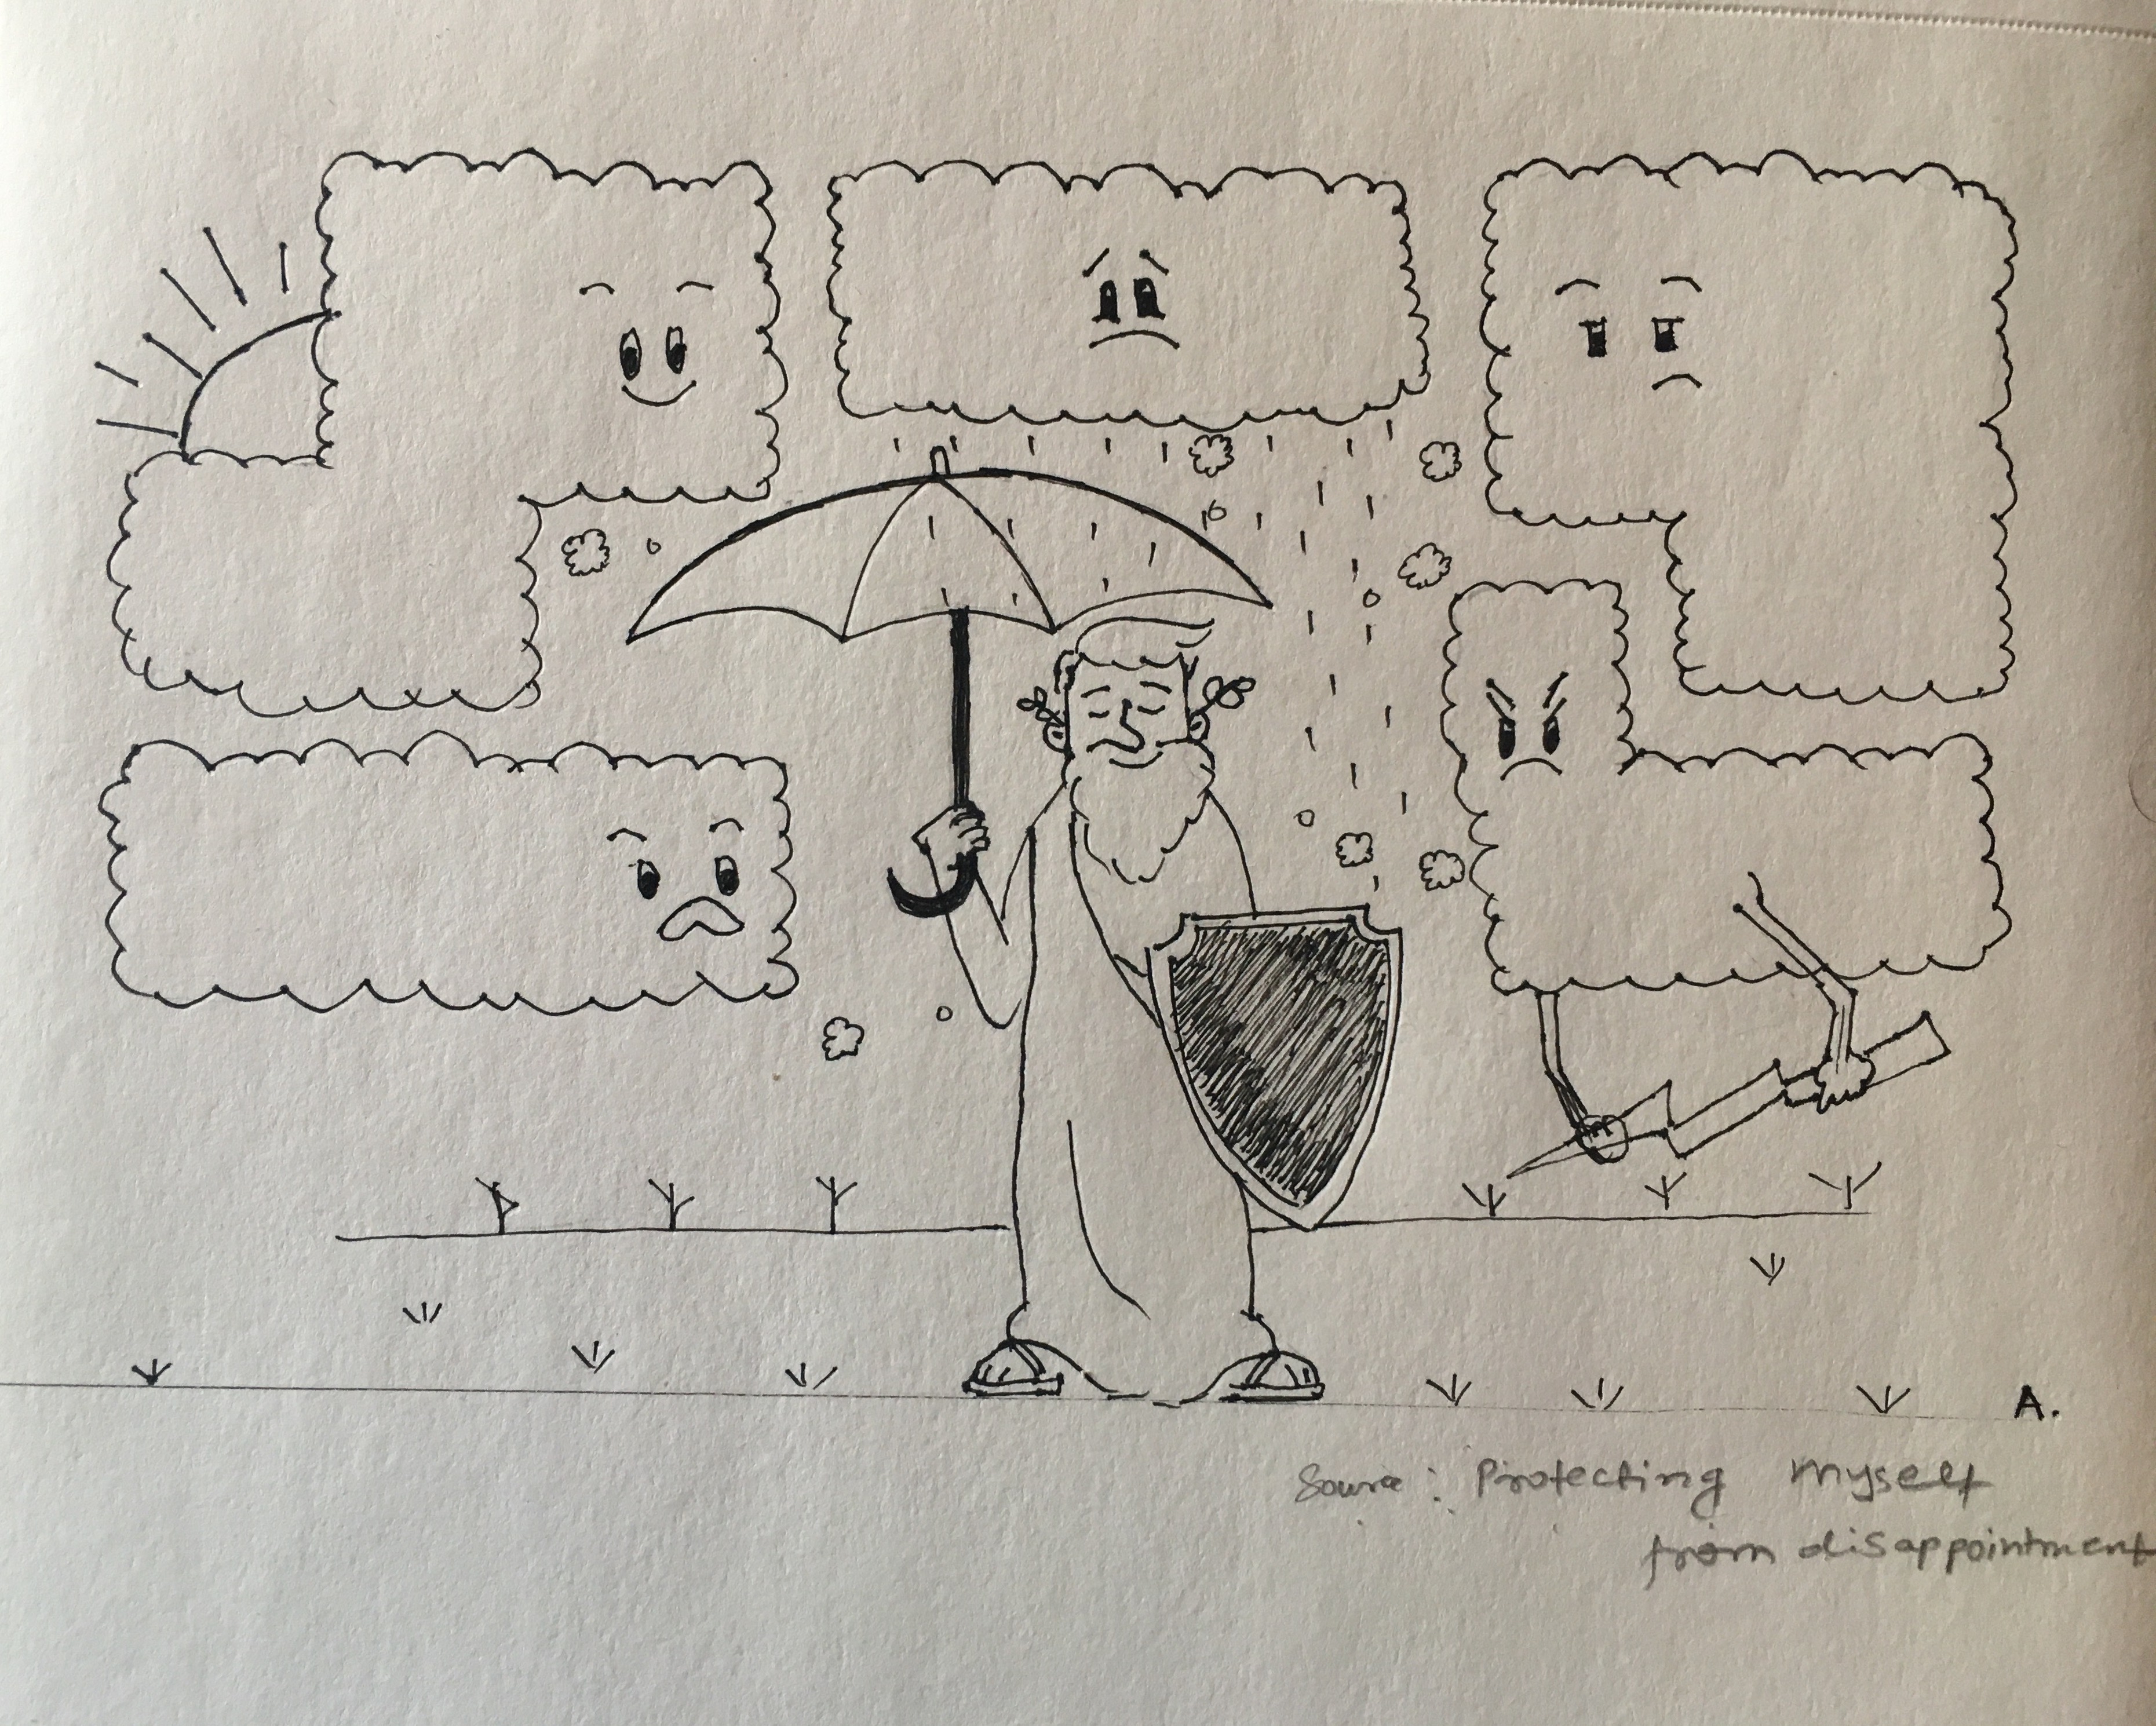 A.
Source: Protecting Myself
from disappointment